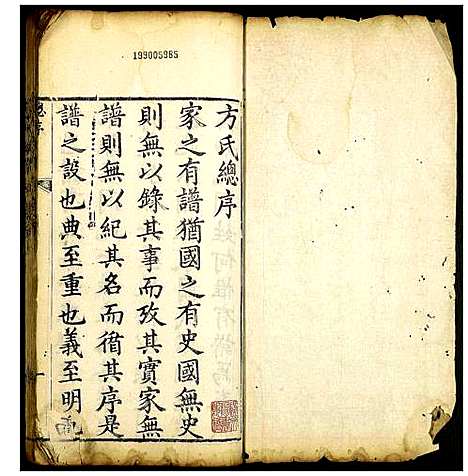 199005965
方氏總序
家之有譜猶國之有史國無史
則無以錄其事而攷其實家無
譜則無以紀其名而循其序是
譜之設也典至重也義至明也
總序
一